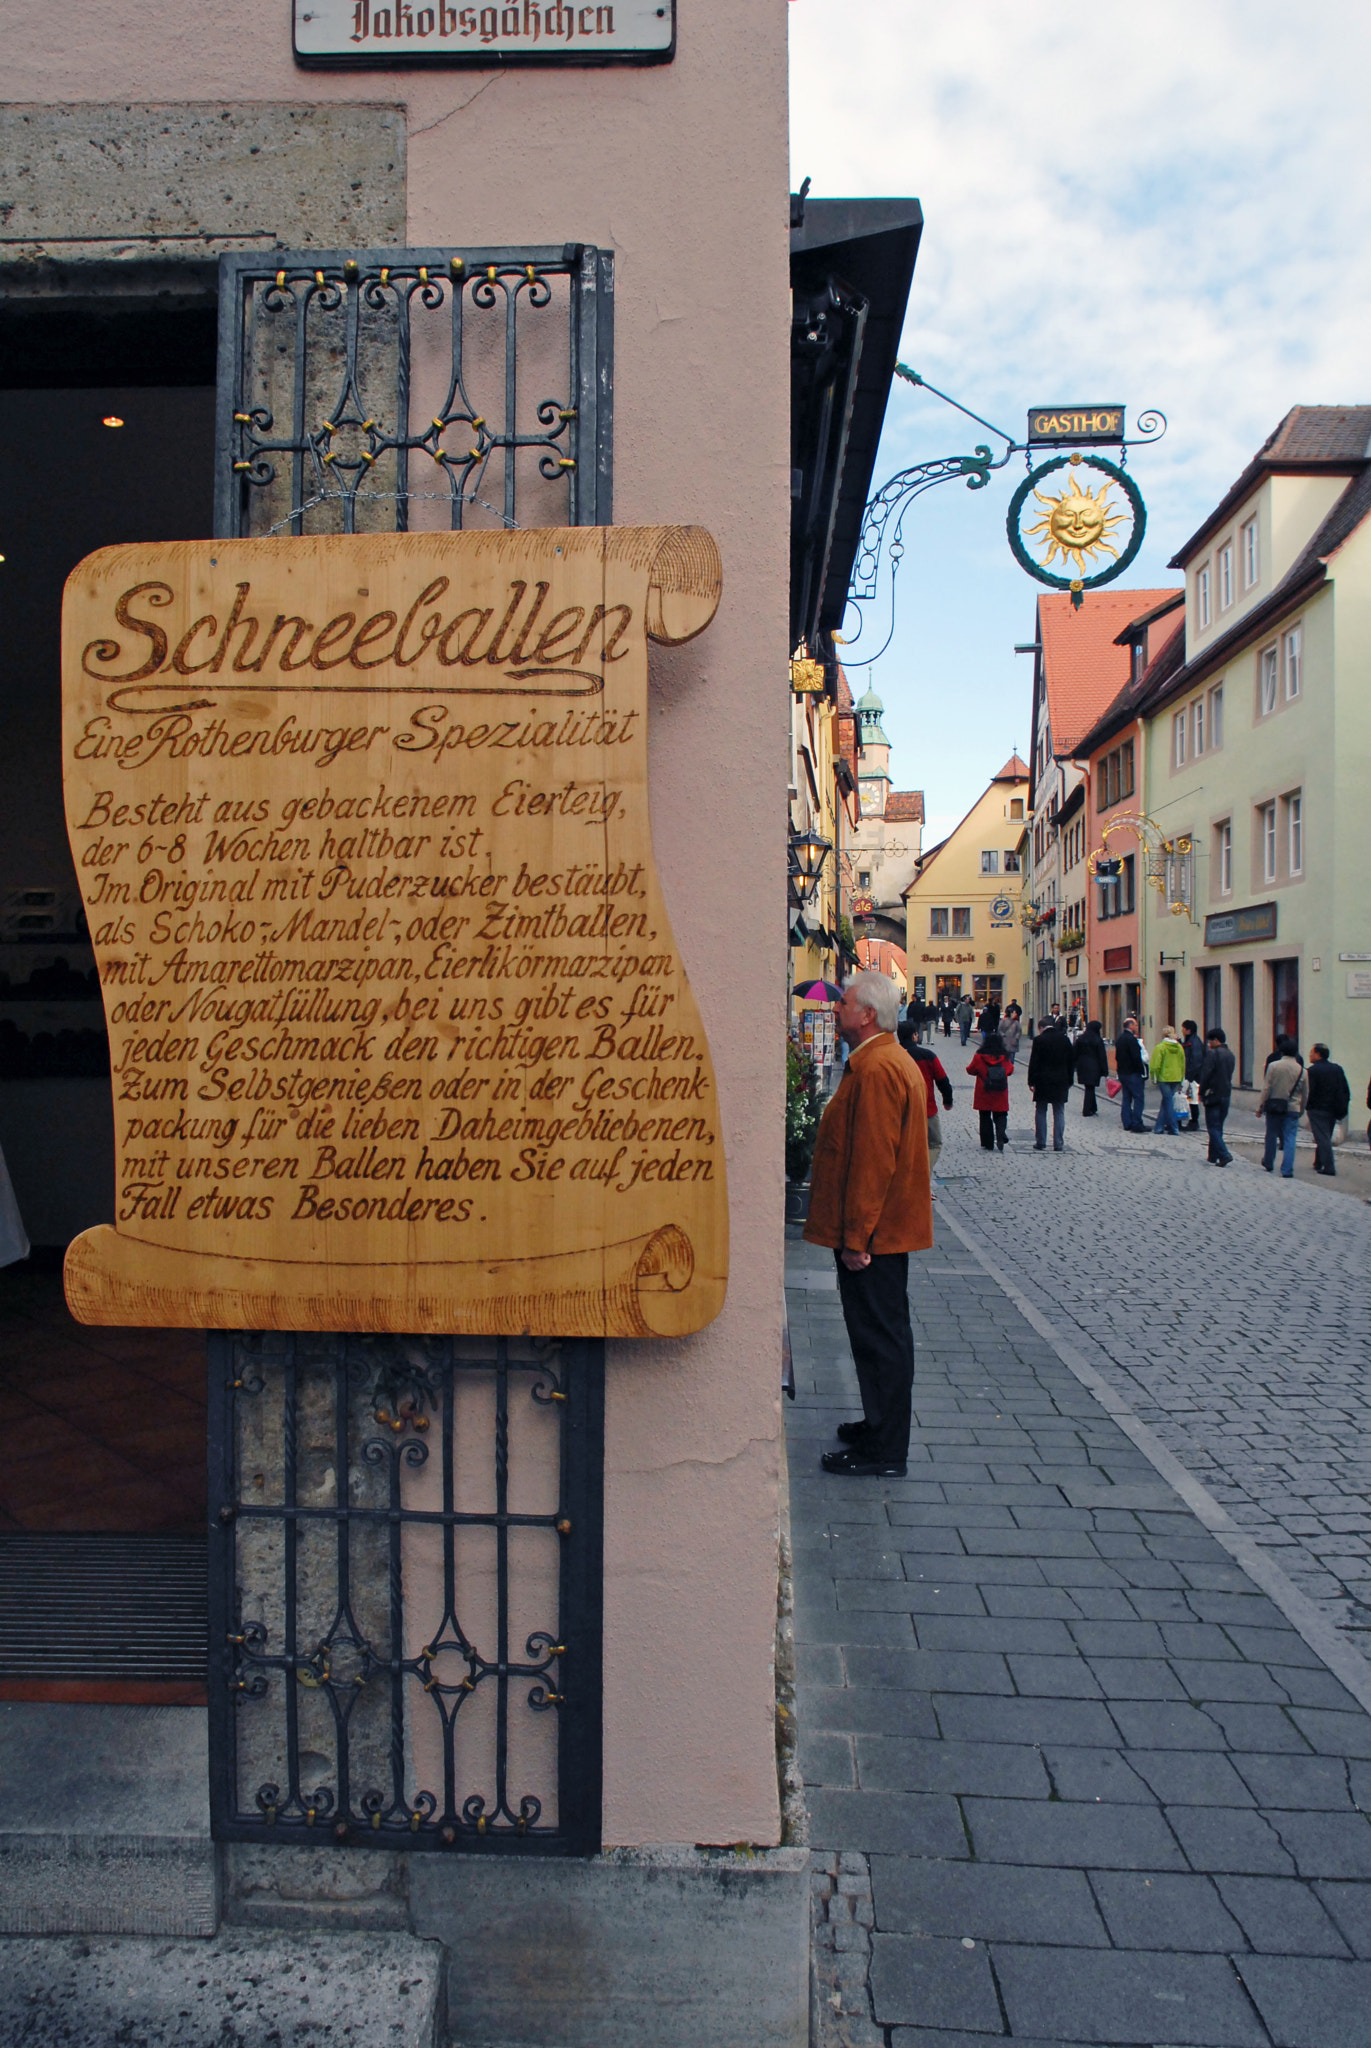 Jakobsgäßchen
GASTHOF
Schneeballen
Eine Rothenburger Spezialität
Besteht aus gebackenem Eierteig,
der 6-8 Wochen haltbar ist.
Im Original mit Puderzucker bestäubt,
als Schoko-, Mandel-, oder Zimtballen,
mit Amarettomarzipan, Eierlikörmarzipan
oder Nougatfüllung, bei uns gibt es für
jeden Geschmack den richtigen Ballen.
Zum Selbstgenießen oder in der Geschenk-
packung für die lieben Daheimgebliebenen,
mit unseren Ballen haben Sie auf jeden
Fall etwas Besonderes.
Brot & Zeit